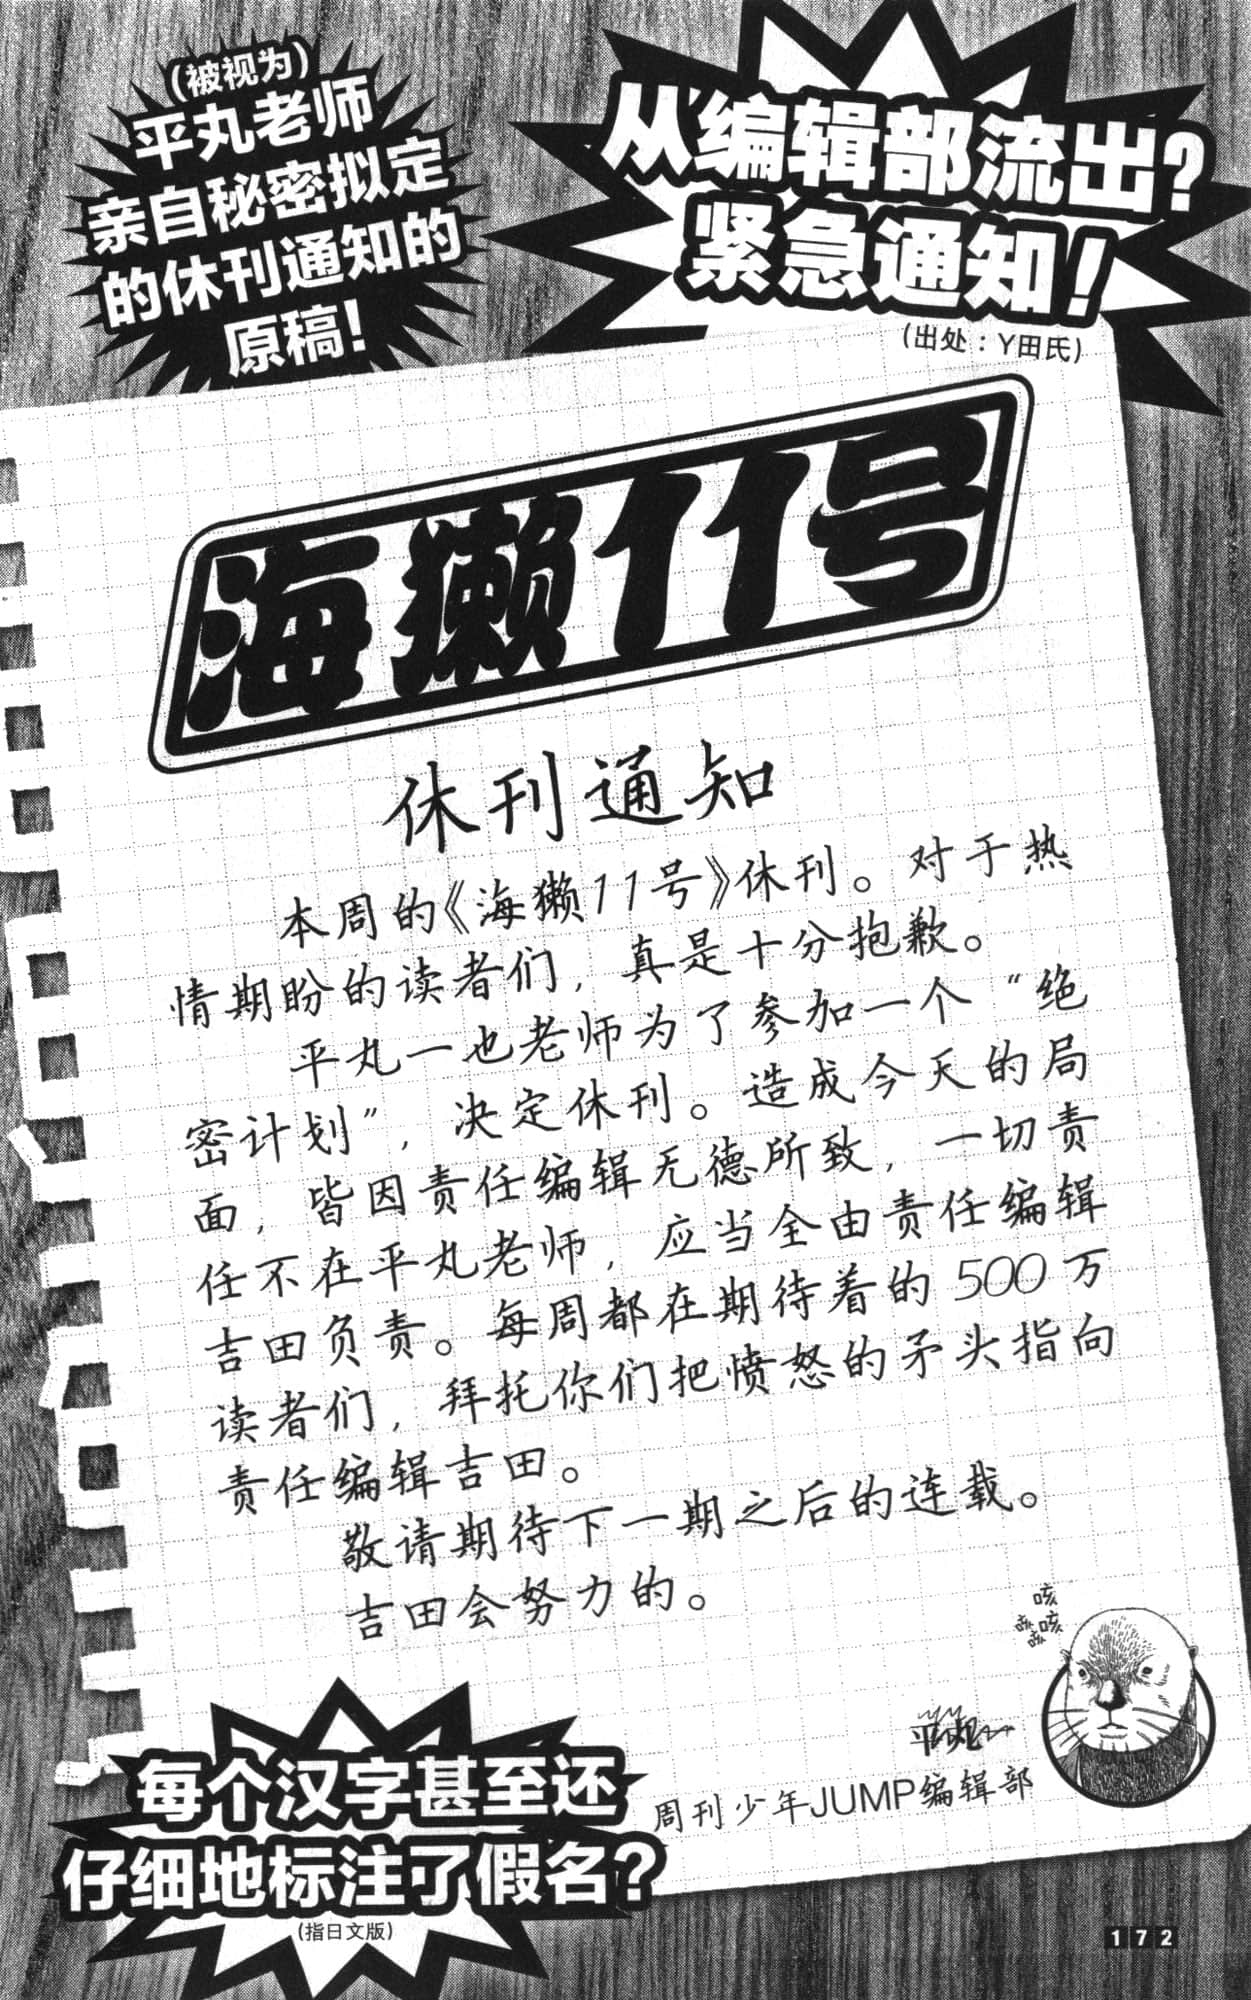 从编辑部流出?
紧急通知!
(出处:Y田氏)
(被视为)
平丸老师
亲自秘密拟定
的休刊通知的
原稿!
海獭11号
休刊通知
本周的《海獭11号》休刊。对于热
情期盼的读者们，真是十分抱歉。
平丸一也老师为了参加一个“绝
密计划”，决定休刊。造成今天的局
面，皆因责任编辑无德所致，一切责
任不在平丸老师，应当全由责任编辑
吉田负责。每周都在期待着的500万
读者们，拜托你们把愤怒的矛头指向
责任编辑吉田。
敬请期待下一期之后的连载。
吉田会努力的。
咳
咳咳
咳
平丸
周刊少年JUMP编辑部
每个汉字甚至还
仔细地标注了假名?
(指日文版)
172